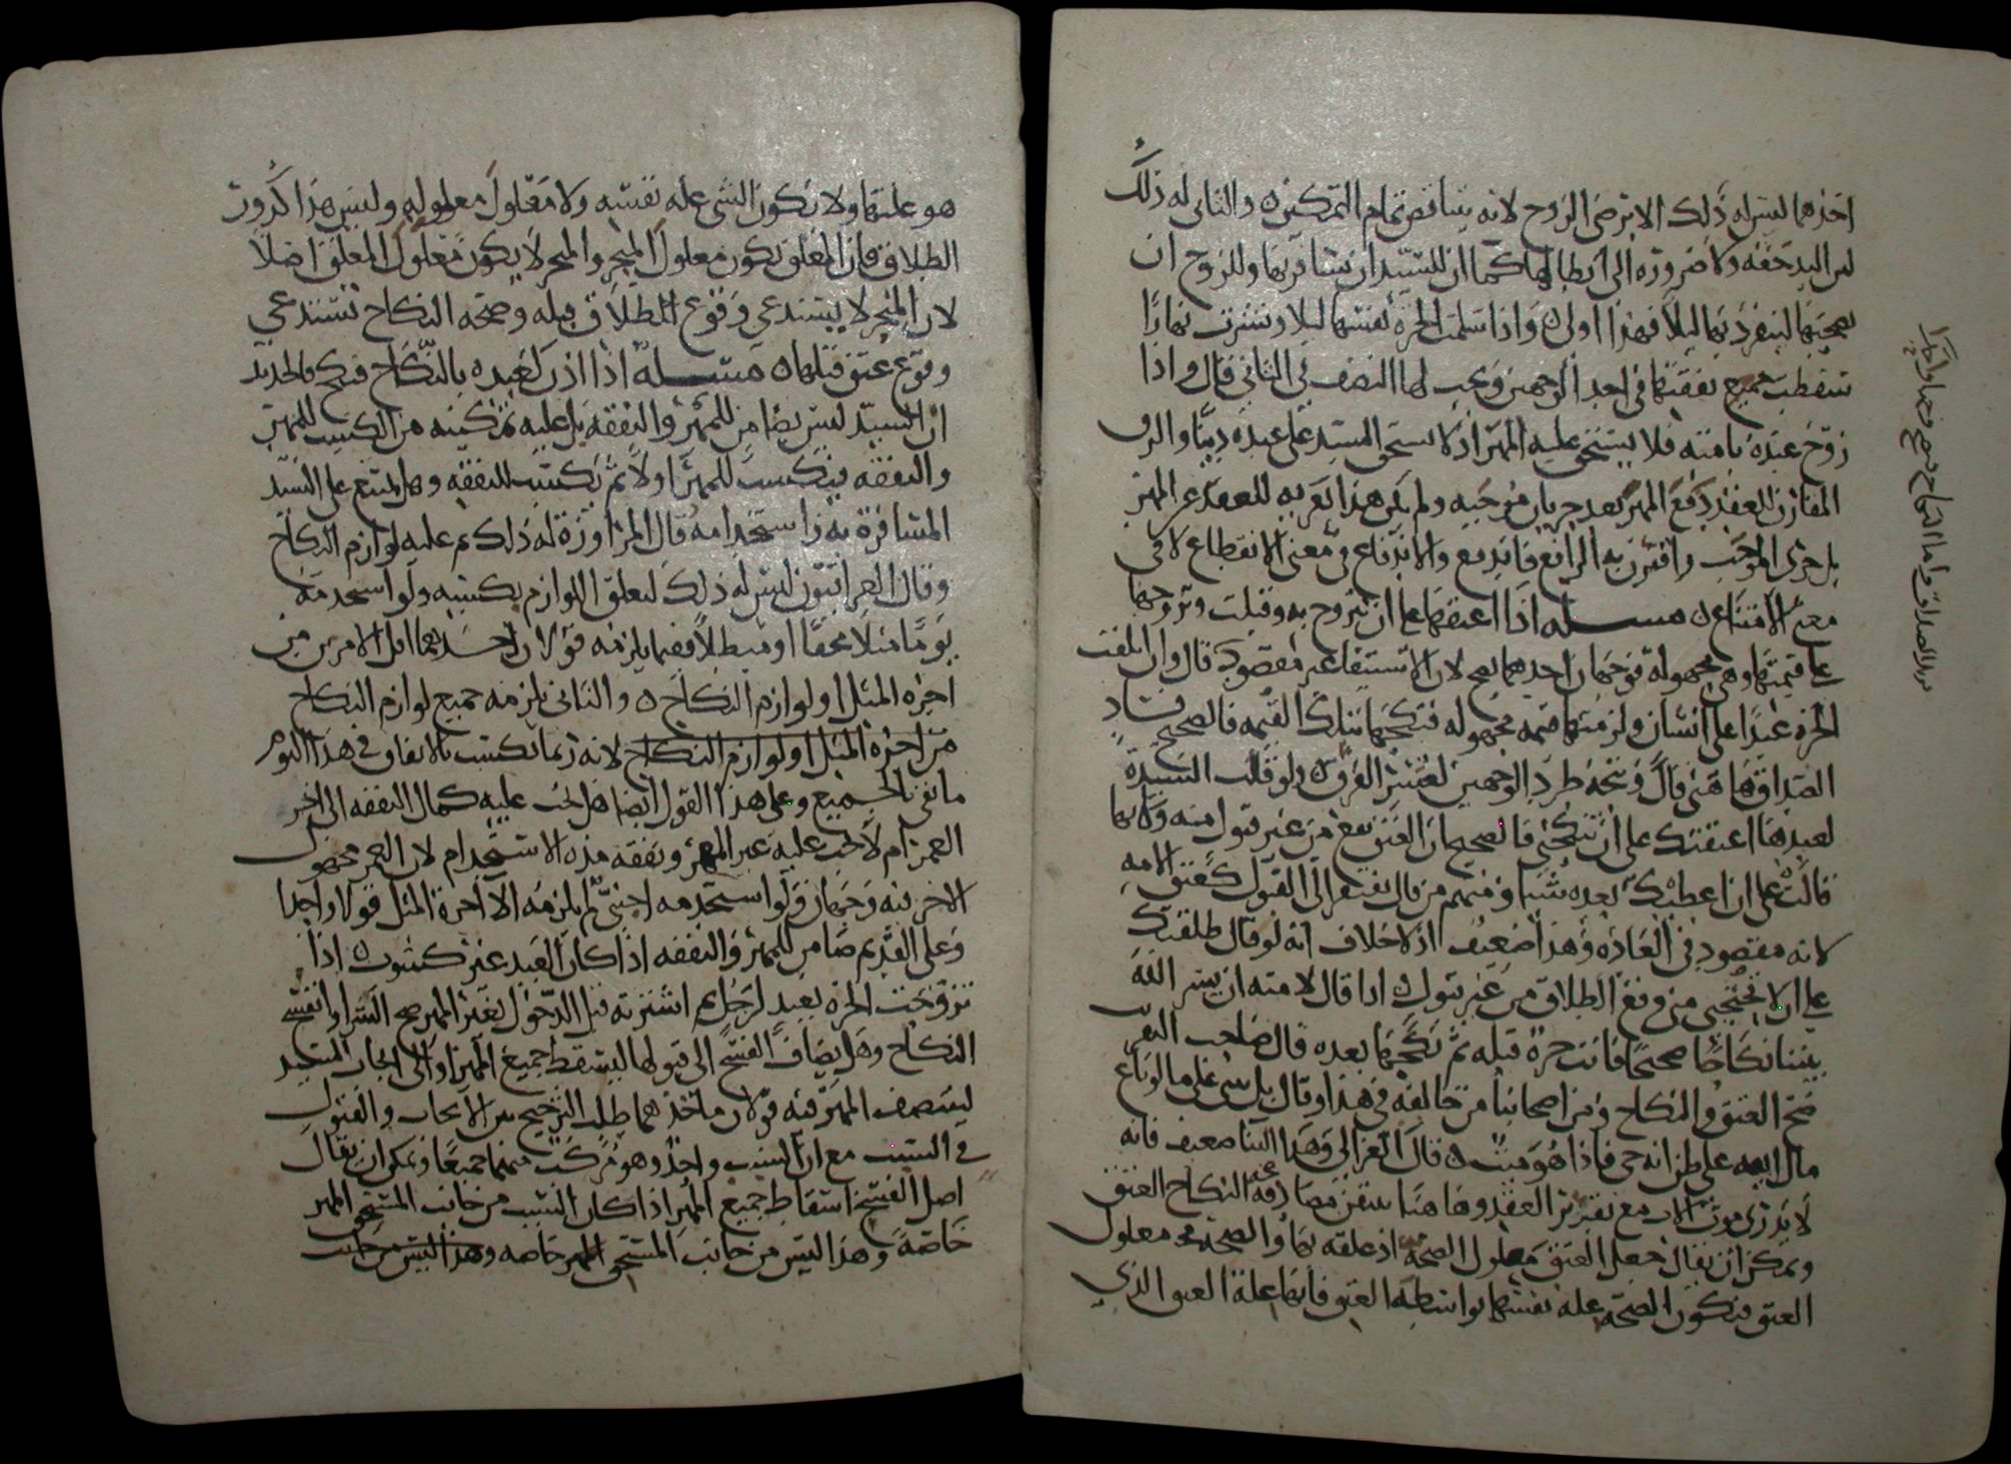 احدهما ليس له ذلك الا برضى الزوج لانه يناقض تمام التمكين ٥ والثانى له ذلك
لان اليد حقه ولا ضرورة الى ابطالها كما ان للسيد ان يسافر بها وللزوج ان
يصحبها لينفرد بها ليلا فهذا اولى ٥ واذا سلمت الحرة نفسها ليلا ونشزت نهارا
سقطت جميع نفقتها فى احد الوجهين ويجب لها النصف فى الثانى قال واذا
زوج عبده بامته فلا يستحق عليه المهر اذ لا يستحق السيد على عبده دينا والرق
المقارن للعقد دفع المهر بعد جريان موجبه ولم يكن هذا تعرية للعقد عن المهر
بل جرى الموجب واقترن به الرافع فاندفع والاندفاع فى معنى الانقطاع لا فى
معنى الامتناع ٥ مسئلة اذا اعتقها على ان تتزوج به وقبلت وتزوجها
على قيمتها وهى مجهولة فوجهان احدهما يصح لان الاستيفا غير مقصود قال وان اتلفت
الحرة عبدا على انسان ولزمتها قيمة مجهولة فنكحها بتلك القيمة فالصحيح فساد
الصداق هاهنا قال ويتجه طرد الوجهين لعسر الفرق ٥ ولو قالت السيدة
لعبدها اعتقتك على ان تنكحنى فالصحيح ان العتق يقع من غير قبول منه وكانها
قالت على ان اعطيك بعده شيا ومنهم من قال يفتقر الى القبول كعتق الامة
لانه مقصود فى العادة وهذا ضعيف اذ لا خلاف انه لو قال طلقتك
على ان لا تحتجبى منى وقع الطلاق من غير قبول ٥ اذا قال لامته ان يسر الله
بيننا نكاحا صحيحا فانت حرة قبله ثم نكحها بعده قال صاحب التقريب
صح العتق والنكاح ومن اصحابنا من خالفه فى هذا وقال بل يبنى على ما لو باع
مال ابيه على ظن انه حى فاذا هو ميت ٥ قال الغزالى وهذا البنا ضعيف فانه
لا يدرى موت الاب مع تقرير العقد وهاهنا يتيقن مصادفة النكاح العتق
ويمكن ان يقال جعل العتق معلول الصحة اذ علقه بها والصحة معلول
العتق فيكون الصحة علة نفسها بواسطة العتق فانها علة العتق الذى
هو علتها ولا يكون الشى علة نفسه ولا معلول معلوله وليس هذا كدور
الطلاق فان المعلق يكون معلول المنجز والمنجز لا يكون معلول المعلق اصلا
لان المنجز لا يستدعى وقوع الطلاق قبله وصحة النكاح تستدعى
وقوع عتق قبلها ٥ مسئلة اذا اذن لعبده بالنكاح فنكح فالجديد
ان السيد ليس بضامن للمهر والنفقة بل عليه تمكينه من الكسب للمهر
والنفقة فيكسب للمهر اولا ثم يكتسب للنفقة وهل يمتنع على السيد
المسافرة به واستخدامه قال المراوزة له ذلك ثم عليه لوازم النكاح
وقال العراقيون ليس له ذلك لتعلق اللوازم بكسبه ولو استخدمه
يوما مثلا محقا او مبطلا ففيما يلزمه قولان احدهما اقل الامرين من
اجرة المثل او لوازم النكاح ٥ والثانى يلزمه جميع لوازم النكاح
من اجرة المثل او لوازم النكاح لانه ربما يكتسب بالاتفاق فى هذا اليوم
ما يفى بالجميع وعلى هذا القول ايضا هل يجب عليه كمال النفقة الى اخر
العمر ام لا يجب عليه غير المهر ونفقة مدة الاستخدام لان العمر مجهول
الاخر فيه وجهان ولو استخدمه اجنبى لم يلزمه الا اجرة المثل قولا واحدا
وعلى القديم ضامن للمهر والنفقة اذا كان العبد غير كسوب ٥ اذا
تزوجت الحرة بعبد لرجل ثم اشترته قبل الدخول بغير المهر صح الشرا وانفسخ
النكاح وهل يضاف الفسخ الى قبولها ليسقط جميع المهر او الى ايجاب السيد
ليتنصف المهر فيه قولان ماخذهما طلب الترجيح بين الايجاب والقبول
فى السبب مع ان السبب واحد وهو مركب منهما جميعا ويمكن ان يقال
اصل الفسخ اسقاط جميع المهر اذا كان السبب من جانب المستحق المهر
خاصة وهذا ليس من جانب المستحق المهر خاصة وهذا ليس من جانب